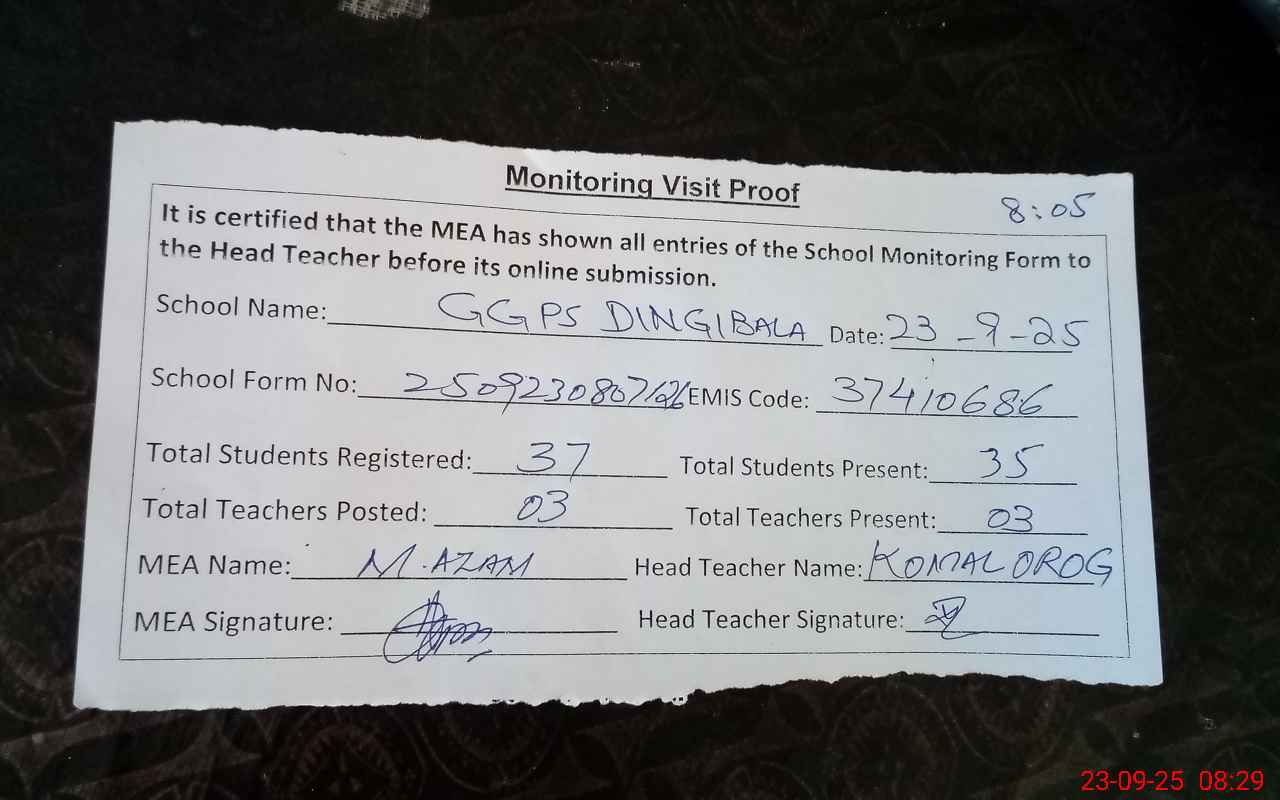 Monitoring Visit Proof
8:05
It is certified that the MEA has shown all entries of the School Monitoring Form to
the Head Teacher before its online submission.
School Name: GGPS DINGIBALA Date: 23-9-25
School Form No: 2509230807626 EMIS Code: 37410686
Total Students Registered: 37 Total Students Present: 35
Total Teachers Posted: 03 Total Teachers Present: 03
MEA Name: M.AZAM Head Teacher Name: KOMAL OROG
MEA Signature: Head Teacher Signature:
23-09-25 08:29